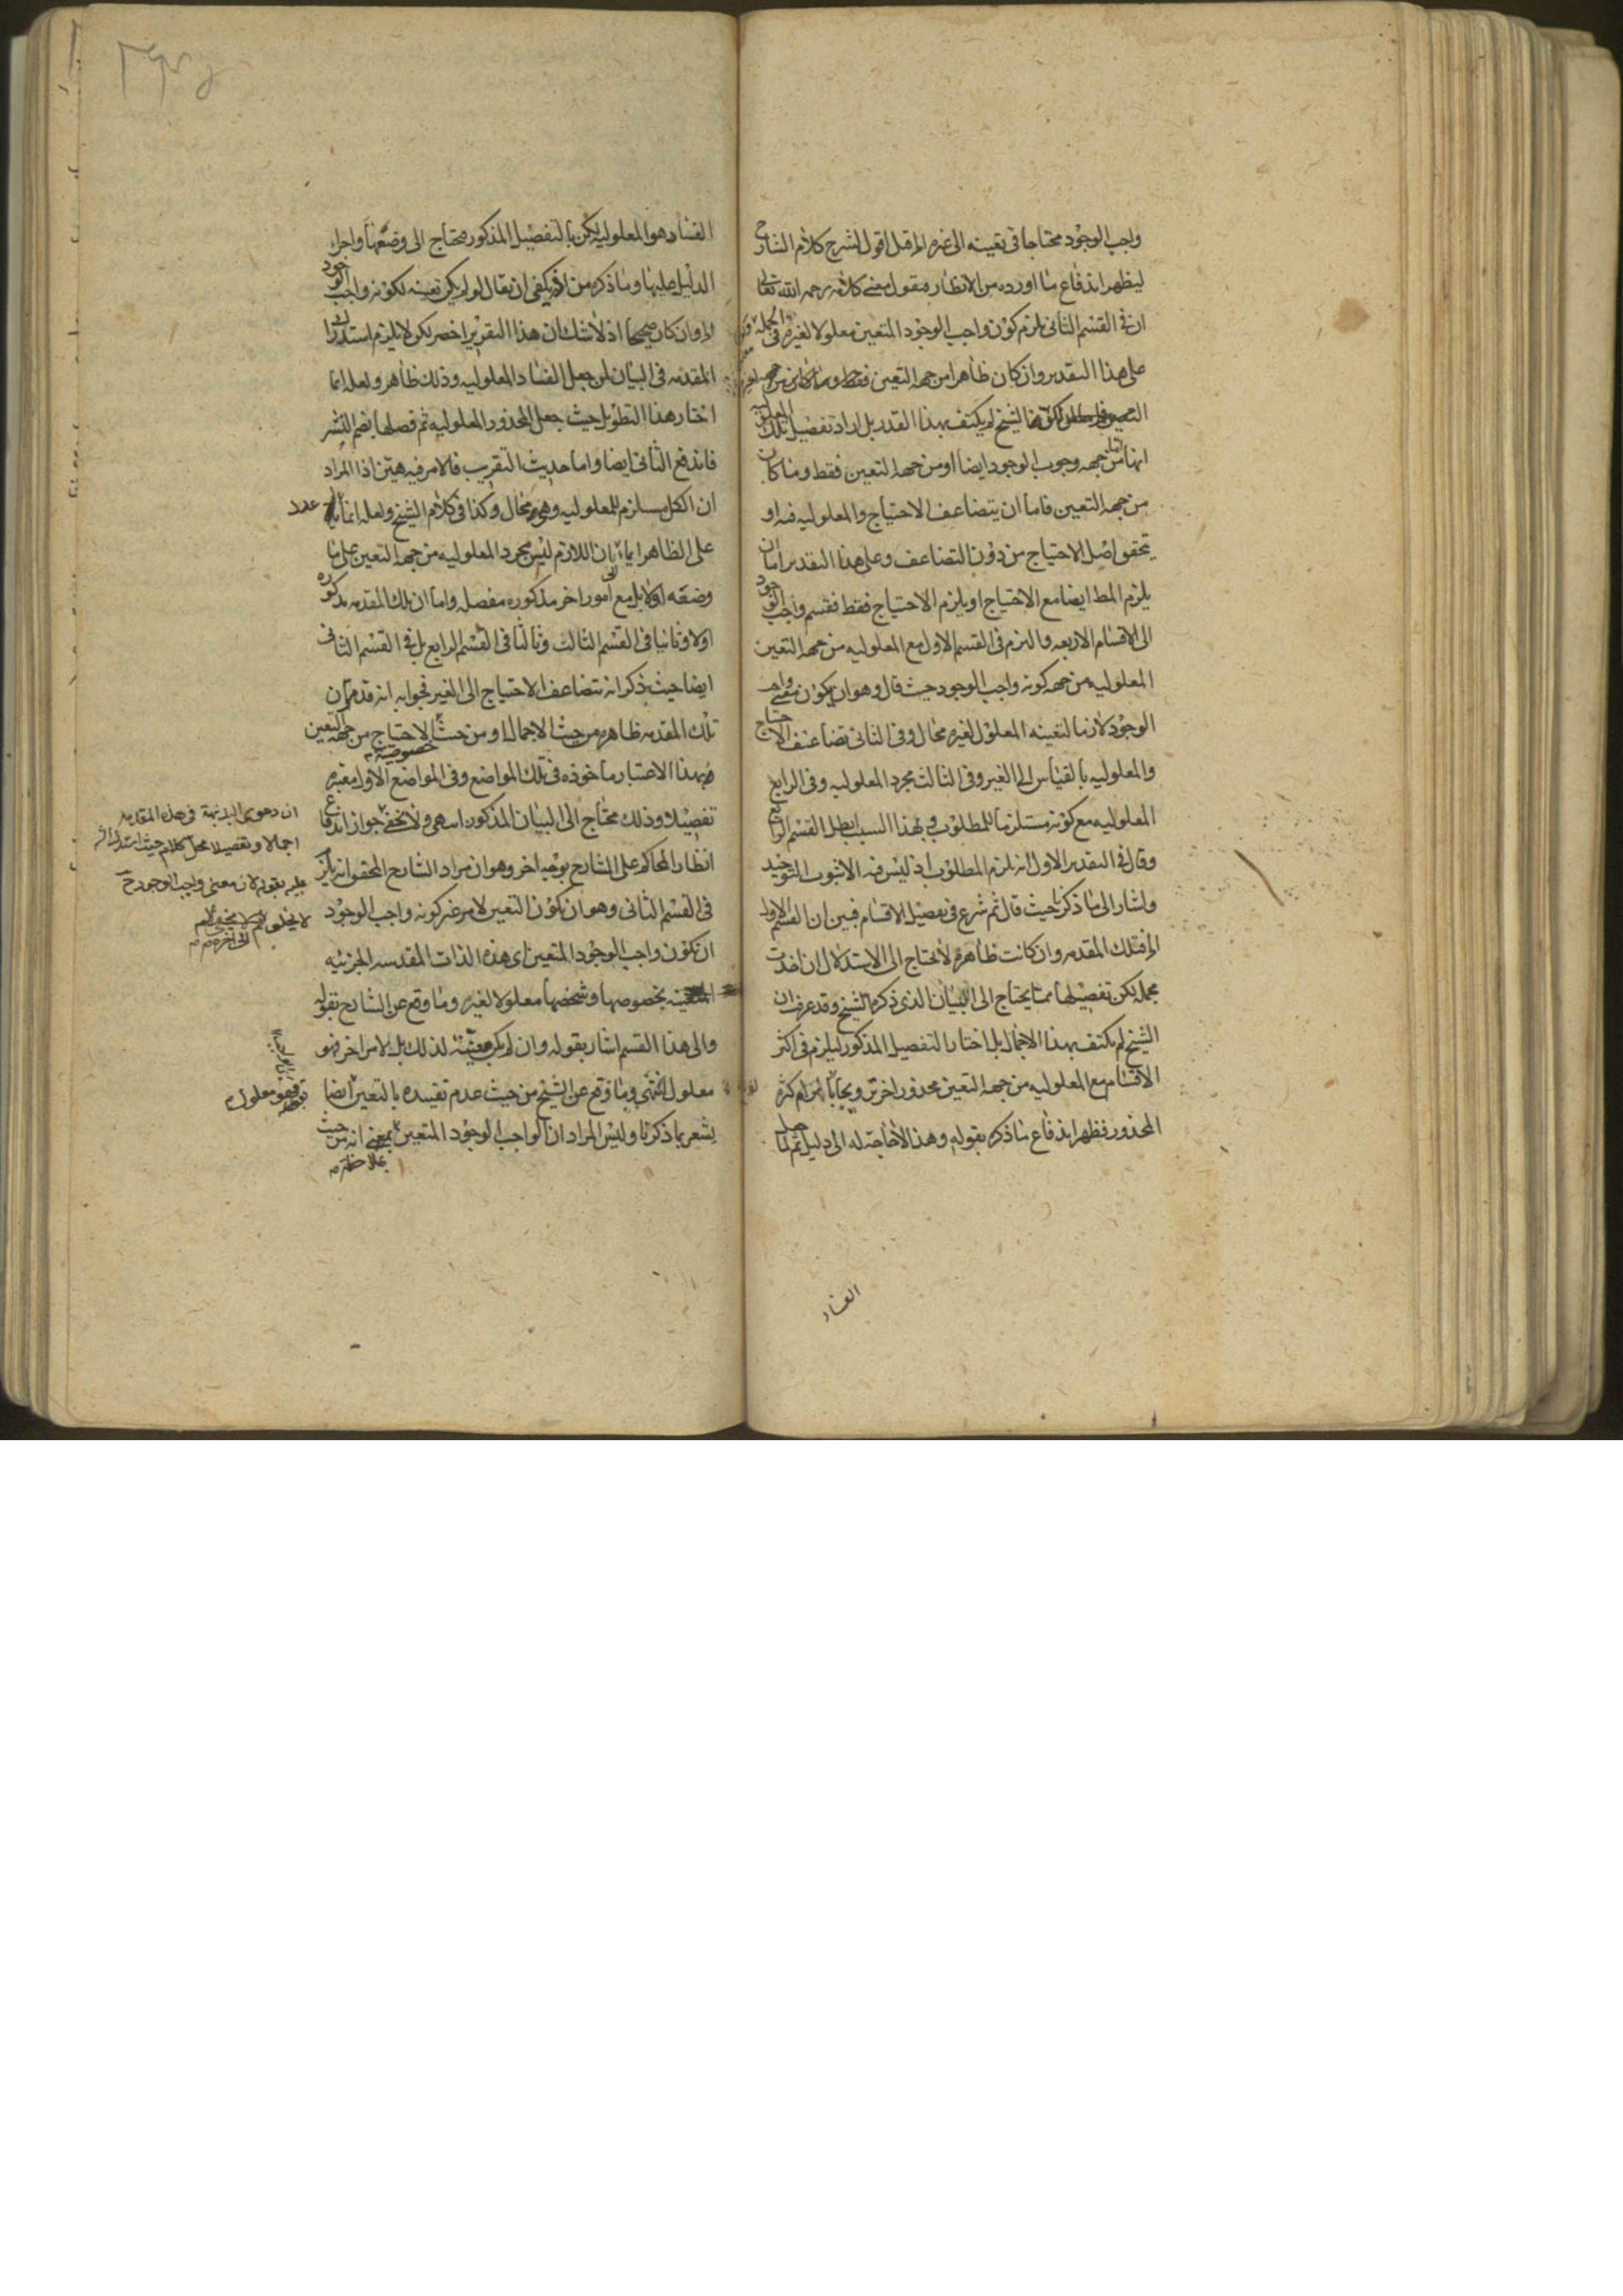 واجب الوجود محتاجا فى تعينه الى غيره اقول لشرح كلام الشارح
ليظهر اندفاع ما اورده من الانظار فنقول معنى كلامه رحمه الله تعالى
ان فى القسم الثانى يلزم كون واجب الوجود المتعين معلولا لغيره فى الجملة
على هذا التقدير وان كان ظاهرا من جهة التعين فقط
الشيخ لم يكتف بهذا القدر بل اراد تفصيل تلك المعلولية
انها من جهة وجوب الوجود ايضا او من جهة التعين فقط وما كان
من جهة التعين فاما ان يتضاعف الاحتياج والمعلولية فيه او
يتحقق اصل الاحتياج من دون التضاعف وعلى هذا التقدير اما ان
يلزم المط ايضا مع الاحتياج او يلزم الاحتياج فقط فقسم واجب الوجود
الى الاقسام الاربعة والتزم فى القسم الاول مع المعلولية من جهة التعين
المعلولية من جهة كونه واجب الوجود حيث قال وهو ان يكون معنى واجب
الوجود لازما لتعينه المعلول لغيره محال وفى الثانى تضاعف الاحتياج
والمعلولية بالقياس الى الغير وفى الثالث مجرد المعلولية وفى الرابع
المعلولية مع كونه مستلزما للمطلوب وبهذا السبب ابطل القسم الرابع
وقال فى التقدير الاول انه يلزم المطلوب اذ ليس فيه الا ثبوت التوحيد
واشار الى ما ذكرنا حيث قال ثم شرع فى تفصيل الاقسام فبين ان القسم الاول
فتلك المقدمة وان كانت ظاهرة لا تحتاج الى الاستدلال ان اخذت
مجملة لكن تفصيلها مما يحتاج الى البيان الذى ذكره الشيخ وقد عرفت ان
الشيخ لم يكتف بهذا الاجمال بل اختار التفصيل المذكور ليلزم فى اكثر
الاقسام مع المعلولية من جهة التعين محذور اخر
المحذور فظهر اندفاع ما ذكره بقوله وهذا لا حاجة له الى دليل ثم لما جعل
الفساد
الفساد هو المعلولية لكن بالتفصيل المذكور محتاج الى وضعها واجراء
الدليل عليها وما ذكره من انه يكفى ان يقال لو لم يكن تعينه لكونه واجب الوجود
وان كان صحيحا اذ لا شك ان هذا التقرير اخصر لكن لا يلزم استدراك
المقدمة فى البيان لمن جعل الفساد المعلولية وذلك ظاهر ولعله انما
اختار هذا التطويل حيث جعل المحذور المعلولية ثم فصلها بضم النشر
فاندفع الثانى ايضا واما حديث التقريب فالامر فيه هين اذا المراد
ان الكل مستلزم للمعلولية وهو محال وكذا فى كلام الشيخ ولعله انما
على الظاهر ايماء بان اللازم ليس مجرد المعلولية من جهة التعين على ما
وضعه اولا بل مع امور اخر مذكورة مفصلة واما ان تلك المقدمة مذكورة
اولا وثانيا فى القسم الثالث وثالثا فى القسم الرابع بل فى القسم الثانى
ايضا حيث ذكر انه يتضاعف الاحتياج الى الغير فجوابه انه قد مر ان
تلك المقدمة ظاهرة من حيث الاجمال ومن حيث الاحتياج من جهة التعين
خصوصه
فبهذا الاعتبار ماخوذة فى تلك المواضع وفى المواضع الاول معتبرة
تفصيلا وذلك محتاج الى البيان المذكور انتهى ولا يخفى جواز اندفاع
انظار المحاكم على الشارح بوجه اخر وهو ان مراد الشارح المحقق انه يلزم
فى القسم الثانى وهو ان يكون التعين لامر غير كونه واجب الوجود
ان يكون واجب الوجود المتعين اى هذه الذات المقدسة الجزئية
بخصوصها وشخصها معلولا لغيره وما وقع عن الشارح بقوله
والى هذا القسم اشار بقوله وان لم يكن تعينه لذلك بل لامر اخر فهو
معلول انتهى وما وقع عن الشيخ من حيث عدم تقييده بالتعين ايضا
يشعر بما ذكرنا وليس المراد ان الواجب الوجود المتعين بمعنى انه من حيث
ملاحظة
ان دعوى البديهة فى هذه المقدمة
اجمالا وتفصيلا محل كلام حيث استدل
عليه بقوله لان معنى واجب الوجود ح
لا يخلو
فهو معلول